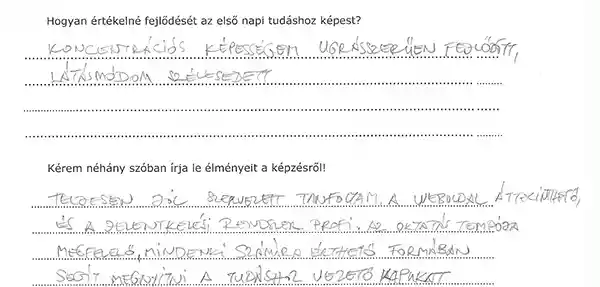 Hogyan értékelné fejlődését az első napi tudáshoz képest?
KONCENTRÁCIÓS KÉPESSÉGEM UGRÁSSZERŰEN FEJLŐDÖTT,
LÁTÁSMÓDOM SZÉLESEDETT
Kérem néhány szóban írja le élményeit a képzésről!
TELJESEN JÓL SZERVEZETT TANFOLYAM. A WEBOLDAL ÁTTEKINTHETŐ,
ÉS A JELENTKEZÉSI RENDSZER PROFI. AZ OKTATÁS TEMPÓJA
MEGFELELŐ, MINDENKI SZÁMÁRA ÉRTHETŐ FORMÁBAN
SEGÍT MEGNYITNI A TUDÁSHOZ VEZETŐ KAPUKAT